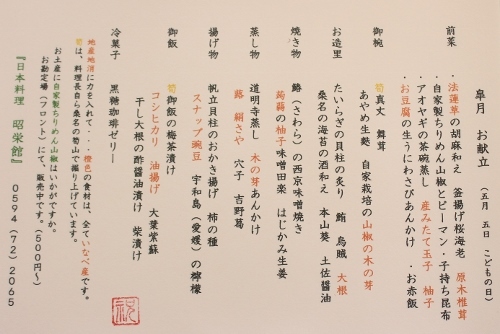 皐月　お献立　（五月　五日　こどもの日）
前菜　・法蓮草の胡麻和え　釜揚げ桜海老　原木椎茸
・自家製ちりめん山椒とピーマン・子持ち昆布
・アオヤギの茶碗蒸し　産みたて玉子　柚子
・お豆腐の生うにわさびあんかけ　・お赤飯
御椀　筍真丈　舞茸
あやめ生麩　自家栽培の山椒の木の芽
お造里　たいらぎの貝柱の炙り　鮪　烏賊　大根
桑名の海苔の酒和え　本山葵　土佐醤油
焼き物　鰆（さわら）の西京味噌焼き
蒟蒻の柚子味噌田楽　はじかみ生姜
蒸し物　道明寺蒸し　木の芽あんかけ
蕗　絹さや　穴子　吉野葛
揚げ物　帆立貝柱のおかき揚げ　柿の種
スナップ豌豆　宇和島（愛媛）の檸檬
御飯　筍御飯の梅茶漬け
コシヒカリ　油揚げ　大葉紫蘇
干し大根の酢醤油漬け　柴漬け
冷菓子　黒糖珈琲ゼリー
地産地消に力を入れて・・・橙色の食材は、全ていなべ産です。
筍は、料理長自ら名の筍山で掘り上げています。
お土産に自家製ちりめん山椒はいかがですか。
お勘定場（フロント）にて、販売中です。（５００円～）
『日本料理　昭栄館』　０５９４（７２）２０６５
祝